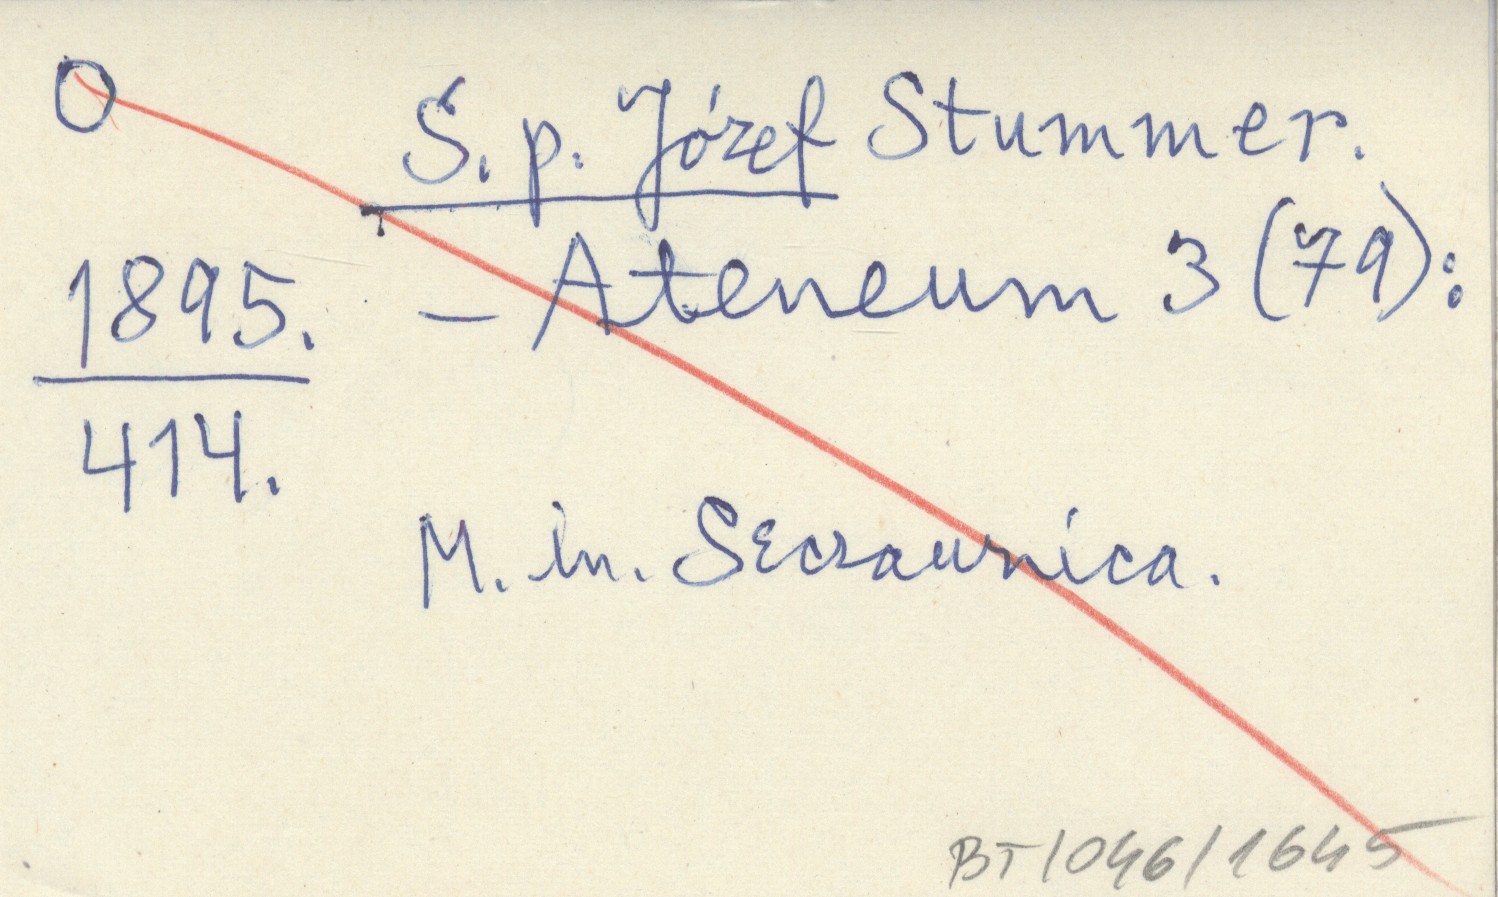 O
Ś. p. Józef Stummer.
1895.
414.
– Ateneum 3 (79):
M. in. Szczawnica.
BT/046/1645